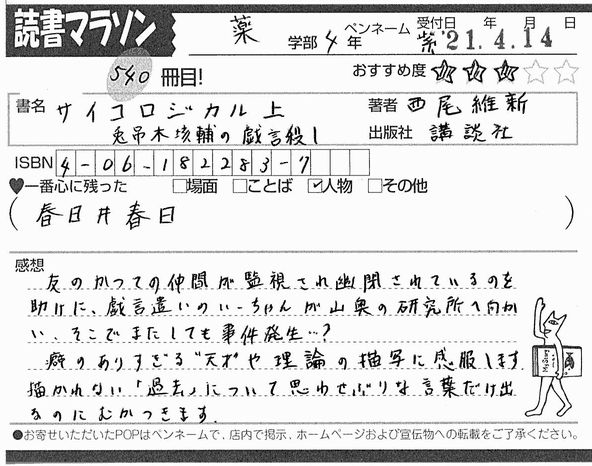 読書マラソン
薬 学部 4 年
ペンネーム 紫
受付日 年 月 日
'21.4.14
540 冊目!
おすすめ度 ★★★☆☆
書名 サイコロジカル 上
兎吊木垓輔の戯言殺し
著者 西尾維新
出版社 講談社
ISBN 4-06-182283-7
♥一番心に残った □場面 □ことば ☑人物 □その他
(春日井春日)
感想
友のかつての仲間が監視され幽閉されているのを
助けに、戯言遣いのいーちゃんが山奥の研究所へ向か
い、そこでまたしても事件発生…?
癖のありすぎる"天才"や理論の描写に感服します
描かれない「過去」について思わせぶりな言葉だけ出
るのにむかつきます.
●お寄せいただいたPOPはペンネームで、店内で掲示、ホームページおよび宣伝物への転載をご了承ください。